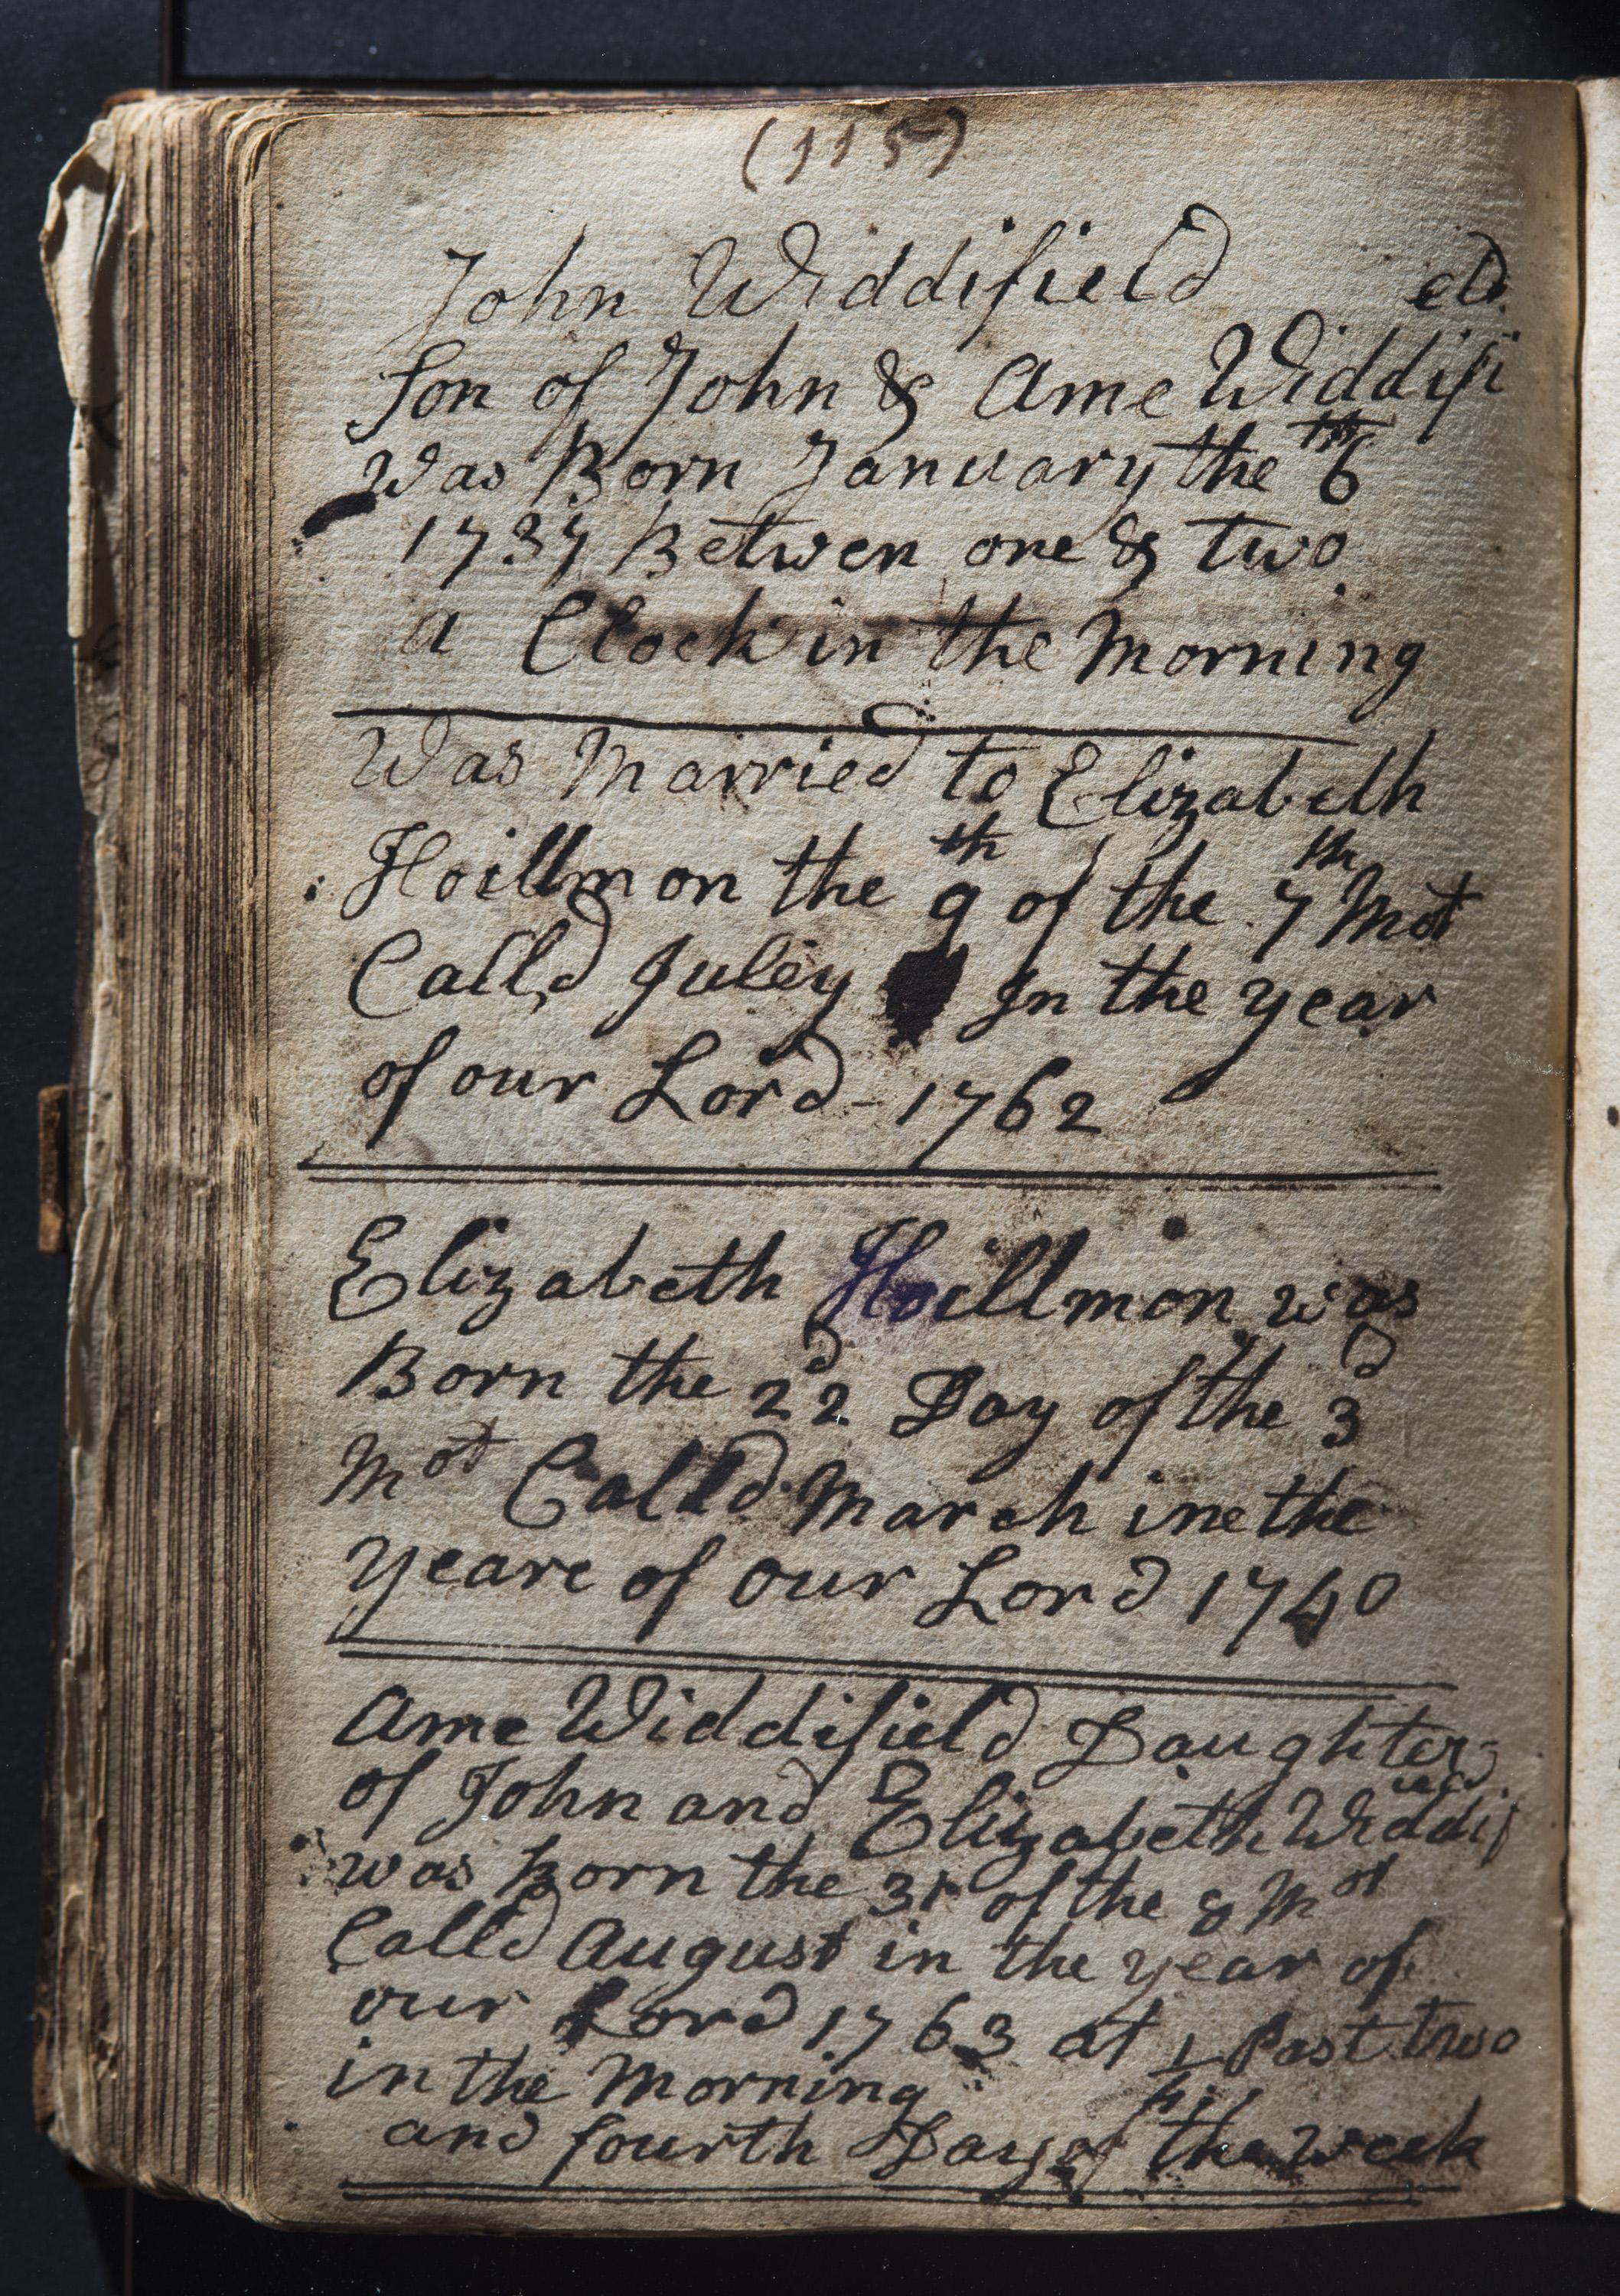 (115)
John Widdifield
Son of John & Ame Widdifi eld
Was Born January the 6th
1737 Betwen one & two
a Clock in the Morning
Was Married to Elizabeth
Hoillmon the 9th of the 7th Mot
Calld Juley In the year
of our Lord - 1762
Elizabeth Hoillmon was
Born the 22d Day of the 3d
Mot Calld March ine the
Yeare of our Lord 1740
Ame Widdifield Daughter
of John and Elizabeth Widdif ield
was Born the 31 of the 8 Mot
Calld August in the year of
our Lord 1763 at 1/4 Past two
in the Morning
and fourth Day of the week